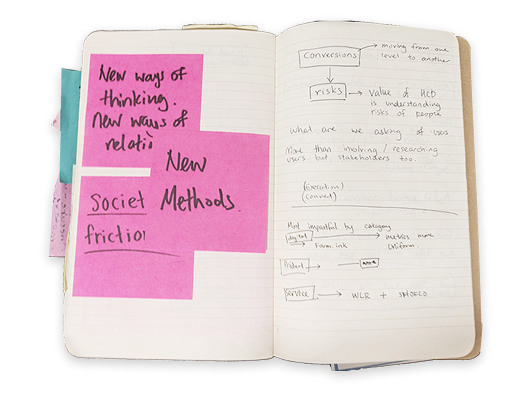 New ways of
thinking.
New ways of
relati
New
Methods.
Societ
friction
conversions
moving from one
level to another
risks
value of HCD
is understanding
risks of people
what are we asking of users
More than involving / researching
users but stakeholders too.
(execution)
(convert)
Most impactful by category
digital
metrics more
Form.ink
Product
Service
WLR +